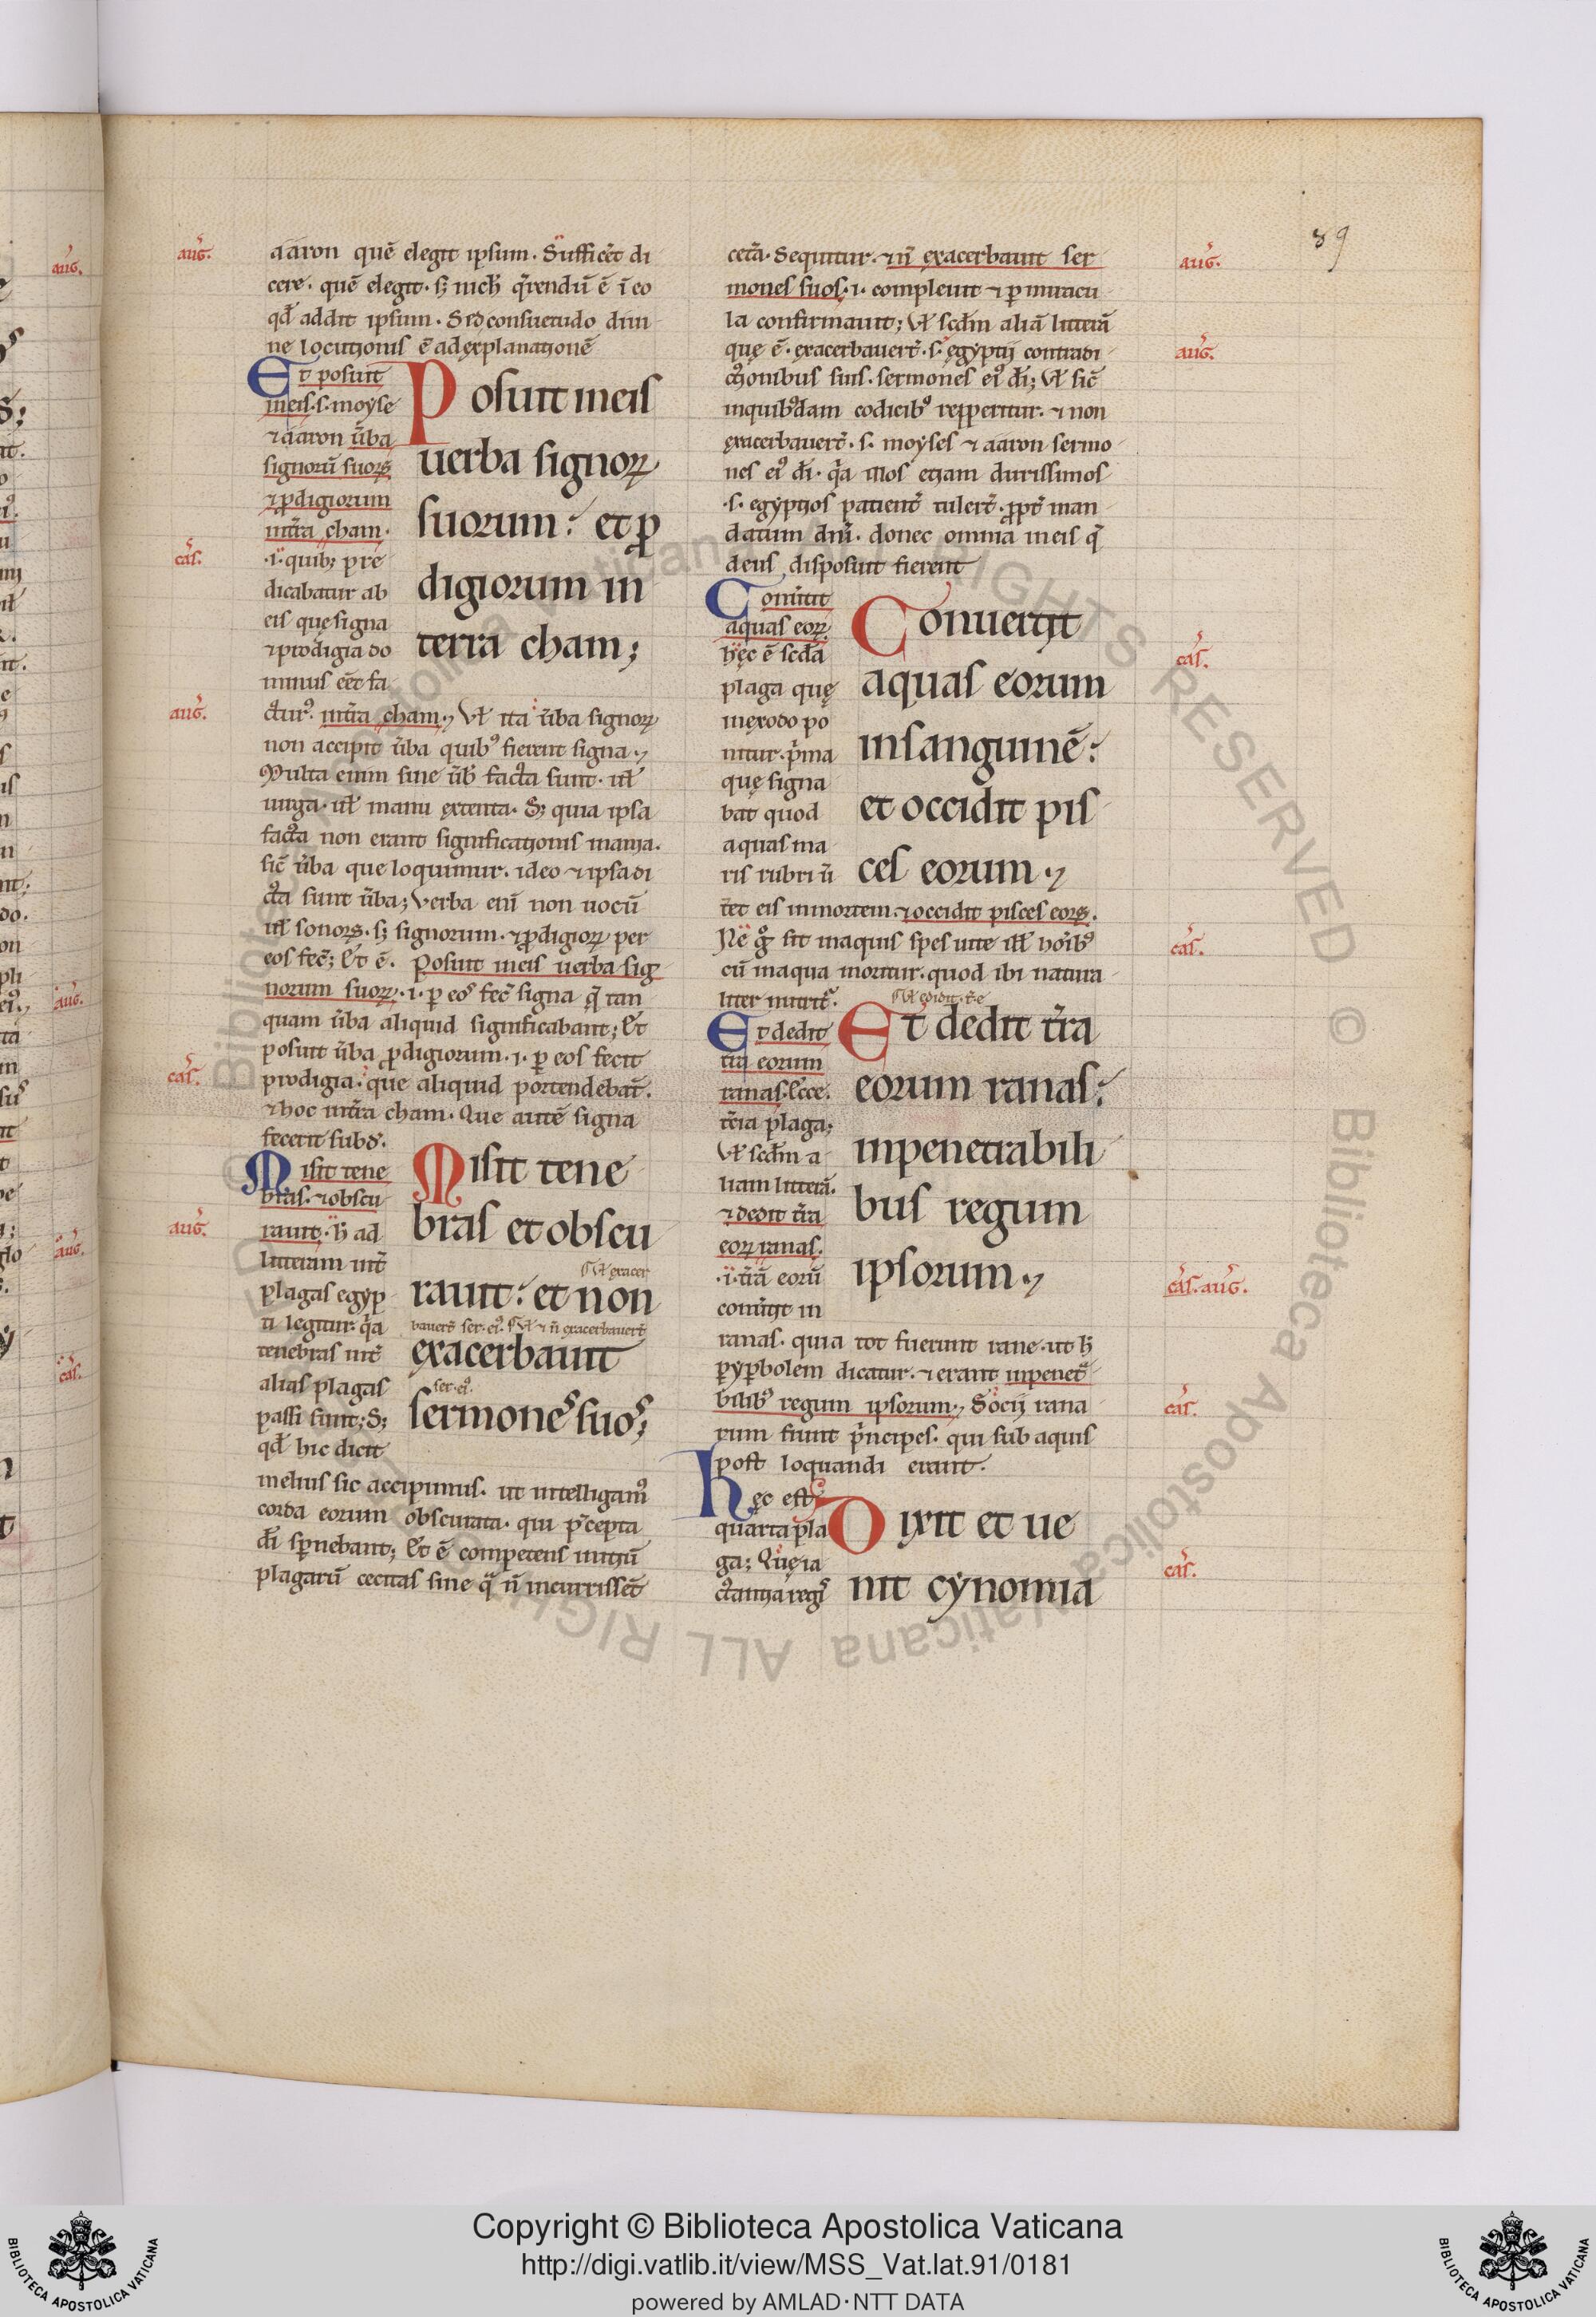 89
aug̃.
aaron quē elegit ipsum. Sufficēt di
cere. quē elegit. s; nich̄ q̄rendū ē ī eo
qđ addit ipsum. Sed consuetudo diui
ne locutionis ē ad explanationē
Et posuit
ineis .s. moyse
⁊ aaron ūba
signorū suoꝝ
⁊ ꝓdigiorum
inťra cham.
.i. quibꝫ pre
dicabatur ab
eis que signa
⁊ prodigia do
minus eēt fa
Posuit ineis
uerba signoꝝ
suorum: et ꝓ
digiorum in
terra cham;
cãs.
aug̃.
ctur⁹. inťra cham. Vł ita ūba signoꝝ
non accipit ūba quib⁹ fierent signa.
Multa enim sine ūb̄ facta sunt. uł
uirga. uł manu extenta. S; quia ipsa
facta non erant significationis inania.
sic̄ ūba que loquimur. ideo ⁊ ipsa di
cta sunt ūba; Verba eni non uocū
uł sonoꝝ. s; signorum. ⁊ ꝓdigioꝝ per
eos fec̄; Et ē. Posuit ineis uerba sig
norum suoꝝ. .i. ꝑ eos fec̄ signa q̄ tan
quam ūba aliquid significabant; Et
posuit ūba ꝓdigiorum. .i. ꝑ eos fecit
prodigia. que aliquid portendebāt.
⁊ hoc inťra cham. Que autē signa
fecerit subđ.
cãs.
Misit tene
bras. ⁊ obscu
rauit. h̄ ad
litteram int̄
plagas egyp
ti legitur. q̄a
tenebras int̄
alias plagas
passi sunt; S;
qđ hic dicit
Misit tene
bras et obscu
Vł exacer
rauit: et non
bauert̄ ser. ei⁹. Vł ⁊ n̄ exacerbauert̄
exacerbauit
ser. ei⁹.
sermones suos;
aug̃.
melius sic accipimus. ut intelligam⁹
corda eorum obscurata. qui p̄cepta
đi sꝑnebant; Et ē competens initiū
plagarū cecitas sine q̄ n̄ incurrissēt
cet̄a. Sequitur. ⁊ n̄ exacerbauit ser
mones suos. .i. compleuit ⁊ ꝑ miracu
la confirmauit; Vł scđm aliā litterā
que ē. exacerbauert̄. .s. egyptii contradi
ctionibus suis. sermones ei⁹ đi; Vł sic̄
inquib⁹dam codicib⁹ repperitur. ⁊ non
exacerbauert̄. .s. moyses ⁊ aaron sermo
nes ei⁹ đi. q̄a illos etiam durissimos
.s. egyptios patient̄ tulert̄. ꝓpt̄ man
datum dn̄i. donec omnia ineis q̄
deus disposuit fierent
aug̃.
aug̃.
Conūtit
aquas eoꝝ.
hec ē scđa
plaga quę
inexodo po
nitur. p̄ma
quę signa
bat quod
aquas ma
ris rubri ū
Conuertit
aquas eorum
insanguinē:
et occidit pis
ces eorum.
cãs.
tēt eis inmortem. ⁊ occidit pisces eoꝝ.
Ne g̊ sit inaquis spes uite ill̄ hoīb⁹
cū inaqua moritur. quod ibi natura
liter nutrit̄.
cãs.
Vł edidit. t̄. e
Et dedit
t̄ra eorum
ranas. Ecce.
t̄cia plaga;
Vł scđm a
liam litterā.
⁊ dedit t̄ra
eoꝝ ranas.
.i. t̄rā eorū
conūtit in
Et dedit t̄ra
eorum ranas:
inpenetrabili
bus regum
ipsorum.
cãs. aug̃.
ranas. quia tot fuerunt rane. ut h̄
ꝑyꝑbolem dicatur. ⁊ erant inpenet̄
bilib⁹ regum ipsorum. Socij rana
rum fiunt p̄ncipes. qui sub aquis
post loquandi erant.
cãs.
Hęc est
quarta pla
ga; Quę ia
ctantia regis
Dixit et ue
nit cynomia
cãs.
Copyright © Biblioteca Apostolica Vaticana
http://digi.vatlib.it/view/MSS_Vat.lat.91/0181
powered by AMLAD·NTT DATA
BIBLIOTECA APOSTOLICA VATICANA
BIBLIOTECA APOSTOLICA VATICANA